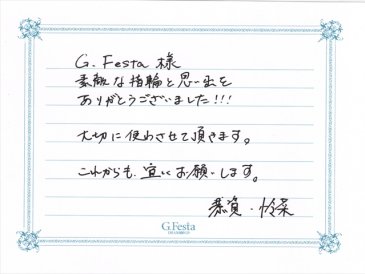 G.Festa 様
素敵な指輪と思い出を
ありがとうございました!!!
大切に使わさせて頂きます。
これからも、宜しくお願いします。
恭資・怜菜
G.Festa